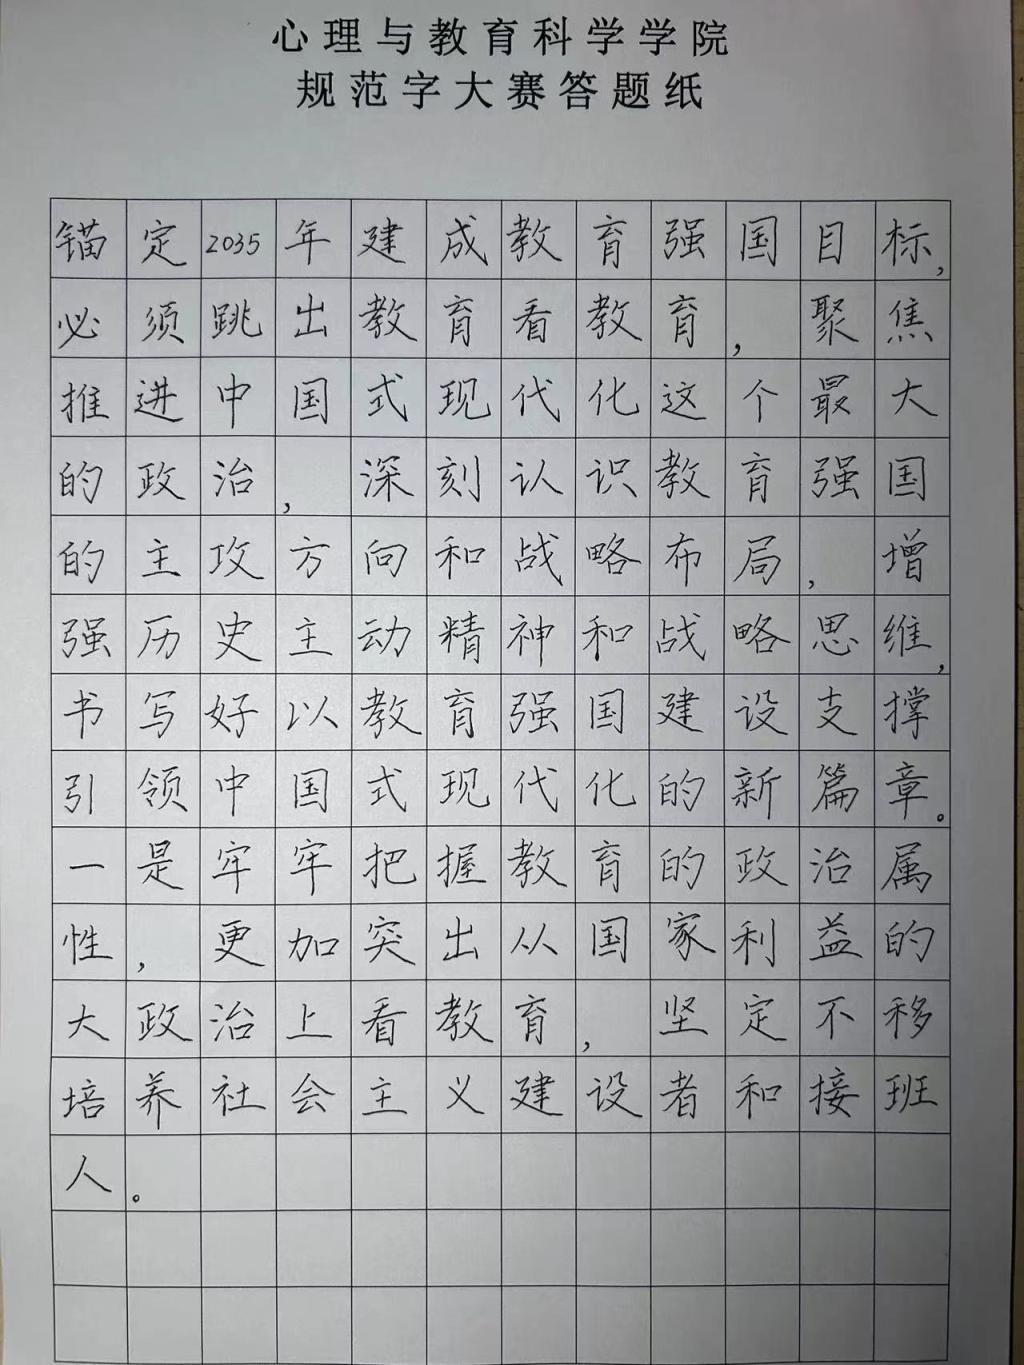 心理与教育科学学院
规范字大赛答题纸
锚定2035年建成教育强国目标，
必须跳出教育看教育，聚焦
推进中国式现代化这个最大
的政治，深刻认识教育强国
的主攻方向和战略布局，增
强历史主动精神和战略思维，
书写好以教育强国建设支撑
引领中国式现代化的新篇章。
一是牢牢把握教育的政治属
性，更加突出从国家利益的
大政治上看教育，坚定不移
培养社会主义建设者和接班
人。